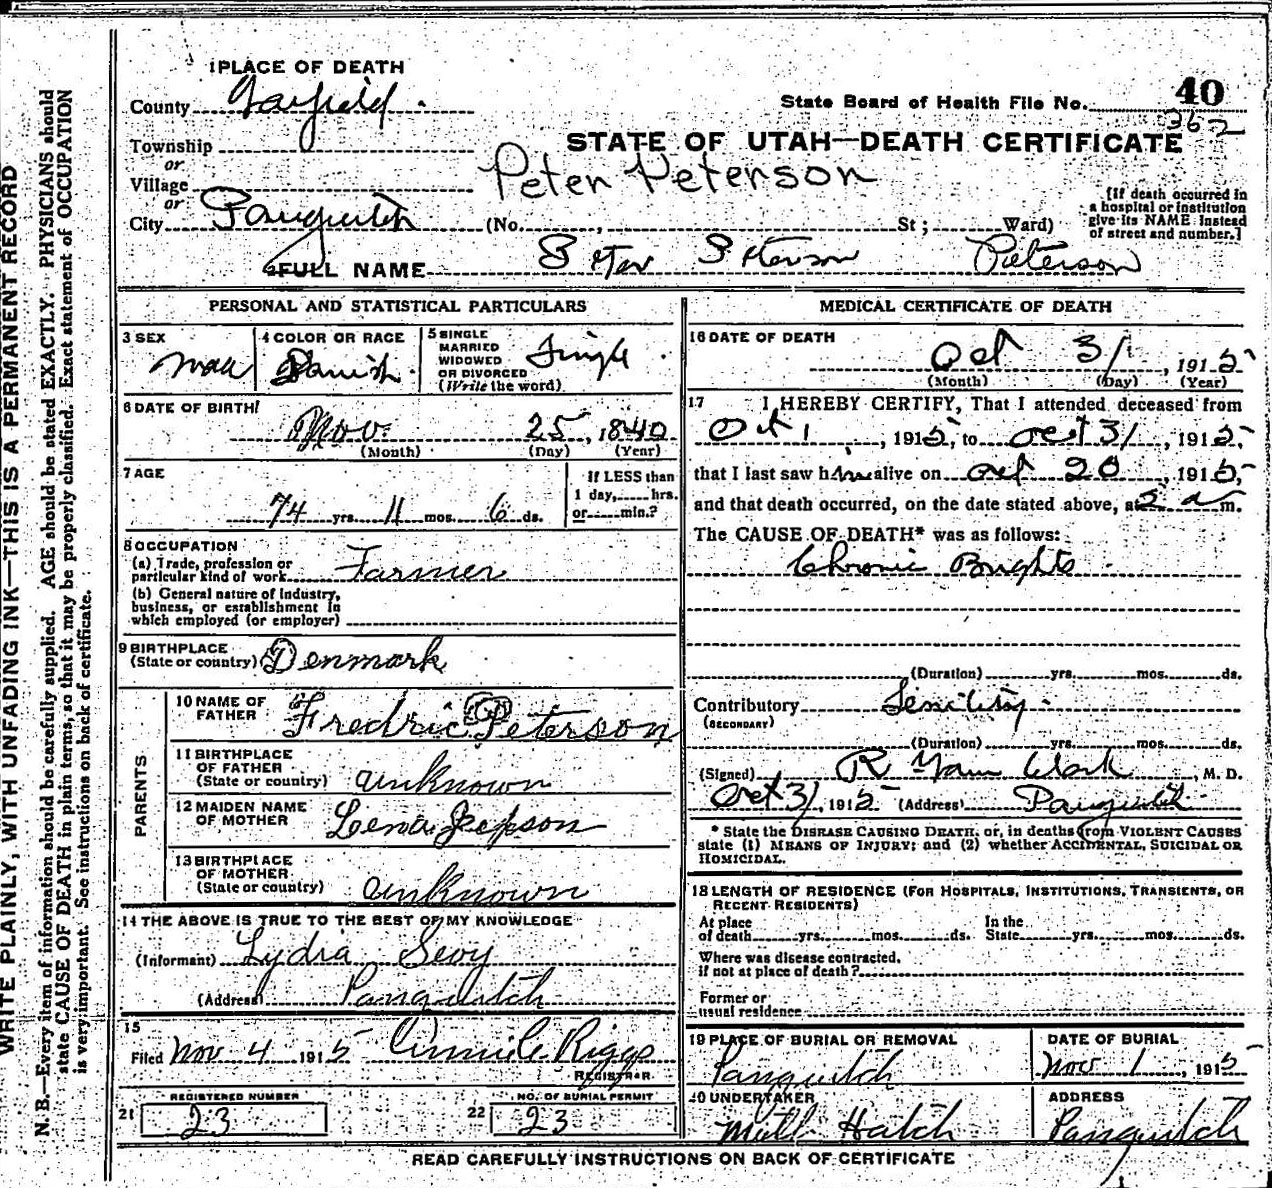 WRITE PLAINLY, WITH UNFADING INK—THIS IS A PERMANENT RECORD
N. B.—Every item of information should be carefully supplied. AGE should be stated EXACTLY. PHYSICIANS should
state CAUSE OF DEATH in plain terms, so that it may be properly classified. Exact statement of OCCUPATION
is very important. See instructions on back of certificate.
1 PLACE OF DEATH
County Garfield
State Board of Health File No. 40
262
STATE OF UTAH—DEATH CERTIFICATE
Township
or
Village
or
Peter Peterson
City Panguitch (No. , St; Ward)
[If death occurred in
a hospital or institution
give its NAME instead
of street and number.]
2 FULL NAME Peter Peterson Peterson
PERSONAL AND STATISTICAL PARTICULARS
3 SEX
Male
4 COLOR OR RACE
Danish
5 SINGLE
MARRIED
WIDOWED
OR DIVORCED
(Write the word)
Single
6 DATE OF BIRTH
Nov. 25, 1840
(Month) (Day) (Year)
7 AGE
74 yrs. 11 mos. 6 ds.
If LESS than
1 day, hrs.
or min.?
8 OCCUPATION
(a) Trade, profession or
particular kind of work Farmer
(b) General nature of industry,
business, or establishment in
which employed (or employer)
9 BIRTHPLACE
(State or country) Denmark
PARENTS
10 NAME OF
FATHER Fredric Peterson
11 BIRTHPLACE
OF FATHER
(State or country) unknown
12 MAIDEN NAME
OF MOTHER Lena Jepson
13 BIRTHPLACE
OF MOTHER
(State or country) unknown
14 THE ABOVE IS TRUE TO THE BEST OF MY KNOWLEDGE
(Informant) Lydia Sevy
(Address) Panguitch
15
Filed Nov 4 1915 Riggs
REGISTRAR
REGISTERED NUMBER
21 23
NO. OF BURIAL PERMIT
22 23
MEDICAL CERTIFICATE OF DEATH
16 DATE OF DEATH
Oct 31, 1915
(Month) (Day) (Year)
17 I HEREBY CERTIFY, That I attended deceased from
Oct 1, 1915, to Oct 31, 1915,
that I last saw him alive on Oct 20, 1915,
and that death occurred, on the date stated above, at 2 a m.
The CAUSE OF DEATH* was as follows:
Chronic Brights
(Duration) yrs. mos. ds.
Contributory Senility
(SECONDARY)
(Duration) yrs. mos. ds.
(Signed) R Clark, M. D.
Oct 31, 1915 (Address) Panguitch
* State the DISEASE CAUSING DEATH, or, in deaths from VIOLENT CAUSES
state (1) MEANS OF INJURY; and (2) whether ACCIDENTAL, SUICIDAL OR
HOMICIDAL.
18 LENGTH OF RESIDENCE (FOR HOSPITALS, INSTITUTIONS, TRANSIENTS, OR
RECENT RESIDENTS)
At place In the
of death yrs. mos. ds. State yrs. mos. ds.
Where was disease contracted,
if not at place of death?
Former or
usual residence
19 PLACE OF BURIAL OR REMOVAL
Panguitch
DATE OF BURIAL
Nov 1, 1915
20 UNDERTAKER
Hatch
ADDRESS
Panguitch
READ CAREFULLY INSTRUCTIONS ON BACK OF CERTIFICATE